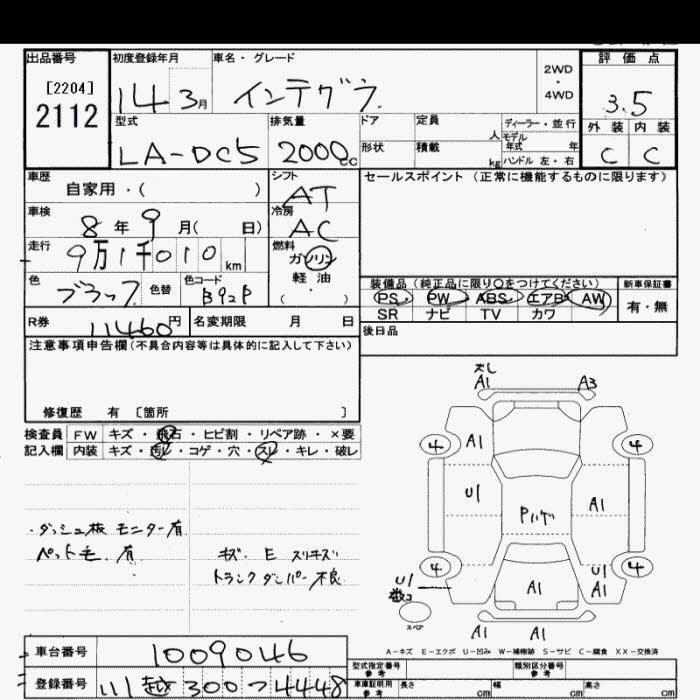 出品番号 初度登録年月 車名・グレード 評価点
[2204] 14 3月 インテグラ 2WD・4WD 3.5
2112
型式 排気量 ドア 定員 人 ディーラー・並行 外装 内装
LA-DC5 2000cc 形状 積載 kg モデル年式 年 C C
ハンドル 左・右
車歴 シフト セールスポイント (正常に機能するものに限ります)
自家用・( ) AT
車検 冷房
8年9月( 日) AC
走行 燃料
9万1千010km ガソリン
色 色替 色コード 軽油
ブラック B92P ( ・ )
装備品 (純正品に限り○をつけてください) 新車保証書
PS PW ABS エアB AW 有・無
SR ナビ TV カワ
R券 11460円 名変期限 月 日 後日品
注意事項申告欄(不具合内容等は具体的に記入して下さい)
修復歴 有 [箇所 ]
検査員 FW キズ・飛石・ヒビ割・リペア跡・×要
記入欄 内装 キズ・汚レ・コゲ・穴・スレ・キレ・破レ
・ダッシュ板 モニター有
ペット毛 有
キズ・E スリキズ
トランクダンパー不良
A1 A3
4 A1 4
U1 A1
Pハゲ
4 4
U1 A1 U1
A1
スペア
A1 A1
A-キズ E-エクボ U-凹み W-補修跡 S-サビ C-腐食 XX-交換済
車台番号 1009046
型式指定番号 参考 類別区分番号 参考
登録番号 川越 300 つ 4448
車庫証明用 参考 長さ cm 幅 cm 高さ cm